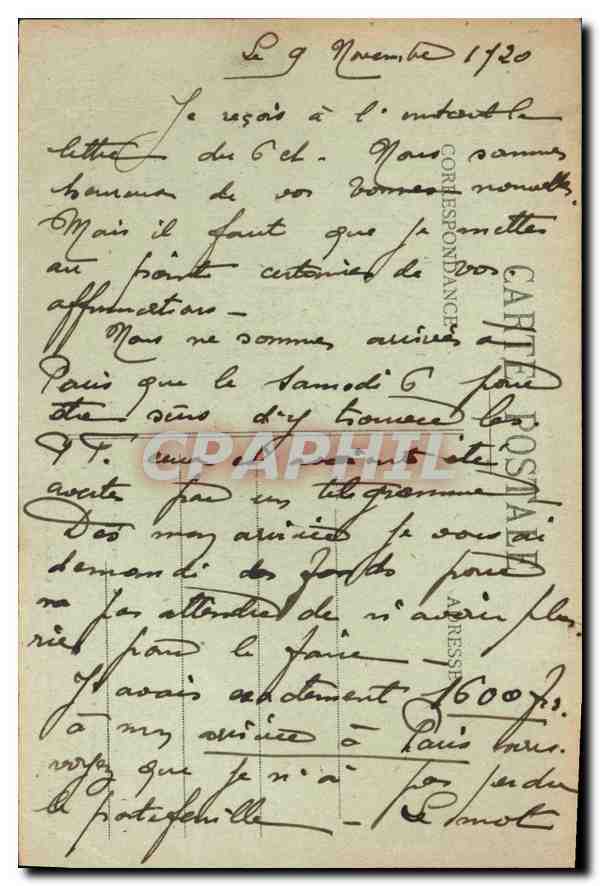 Le 9 Novembre 1920
Je reçois à l'instant la
lettre du 6 ct. Nous sommes
heureux de vos bonnes nouvelles.
Mais il faut que je mette
au point certaines de vos
affirmations -
Nous ne sommes arrivés à
Paris que le Samedi 6 pour
être sûrs d'y trouver les
T T. ceux ci avaient été
avertis par un télégramme
Dès mon arrivée je vous ai
demandé des fonds pour
ne pas attendre de n'avoir plus
rien pour le faire -
J'avais exactement 1600 frs.
à mon arrivée à Paris vous
voyez que je n'ai pas perdu
le portefeuille - Le mot
CARTE POSTALE
CORRESPONDANCE
ADRESSE
CPAPHIL